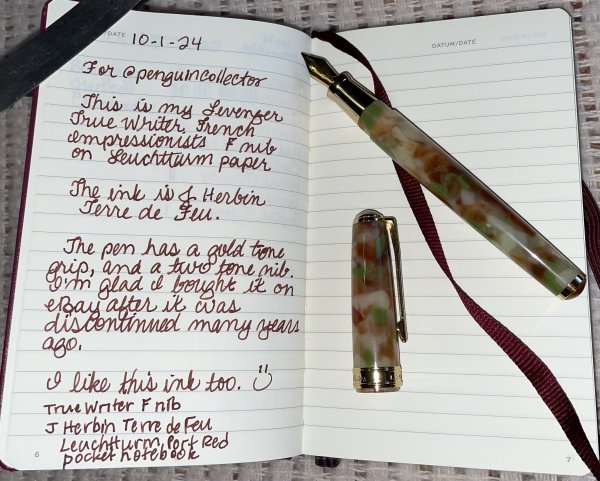 DATE 10-1-24
For @penguincollector
This is my Levenger
True Writer French
Impressionists F nib
on Leuchtturm paper
The ink is J. Herbin
Terre de Feu.
The pen has a gold tone
grip, and a two tone nib.
I'm glad I bought it on
eBay after it was
discontinued many years
ago.
I like this ink too. :)
True Writer F nib
J Herbin Terre de Feu
Leuchtturm Port Red
pocket notebook
6
DATUM/DATE
7